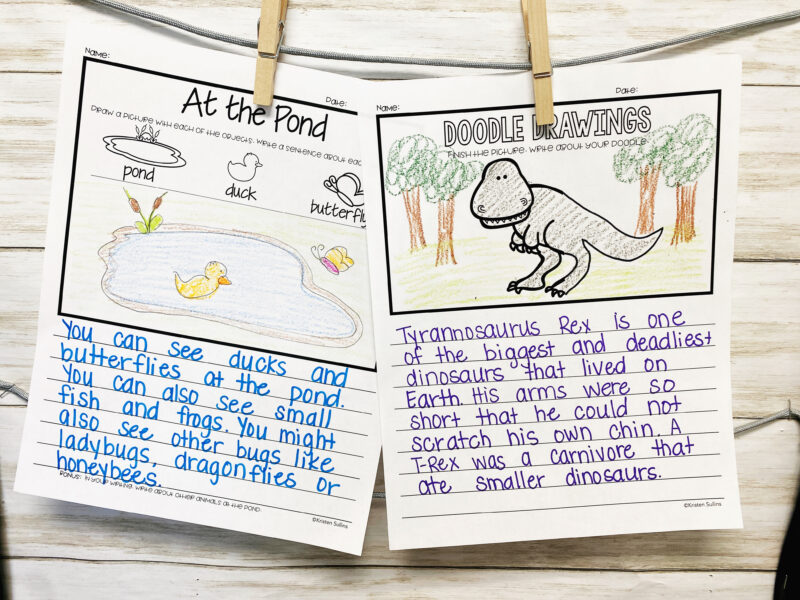 Name:
Date:
At the Pond
Draw a picture with each of the objects. Write a sentence about each
pond
duck
butterfly
You can see ducks and
butterflies at the pond.
You can also see small
fish and frogs. You might
also see other bugs like
ladybugs, dragonflies or
honeybees.
Bonus: In your writing, write about other animals at the pond.
©Kristen Sullins
Name:
Date:
DOODLE DRAWINGS
Finish the picture. Write about your doodle.
Tyrannosaurus Rex is one
of the biggest and deadliest
dinosaurs that lived on
Earth. His arms were so
short that he could not
scratch his own chin. A
T-Rex was a carnivore that
ate smaller dinosaurs.
©Kristen Sullins